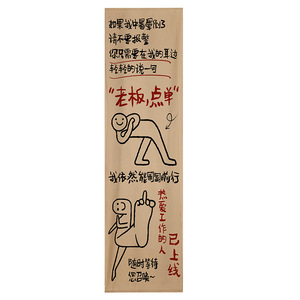 如果我中暑晕倒
请不要报警
您只需要在我的耳边
轻轻的说一句
“老板,点单”
我依然能匍匐前行
热爱工作的人
已上线
随时等待
您召唤~